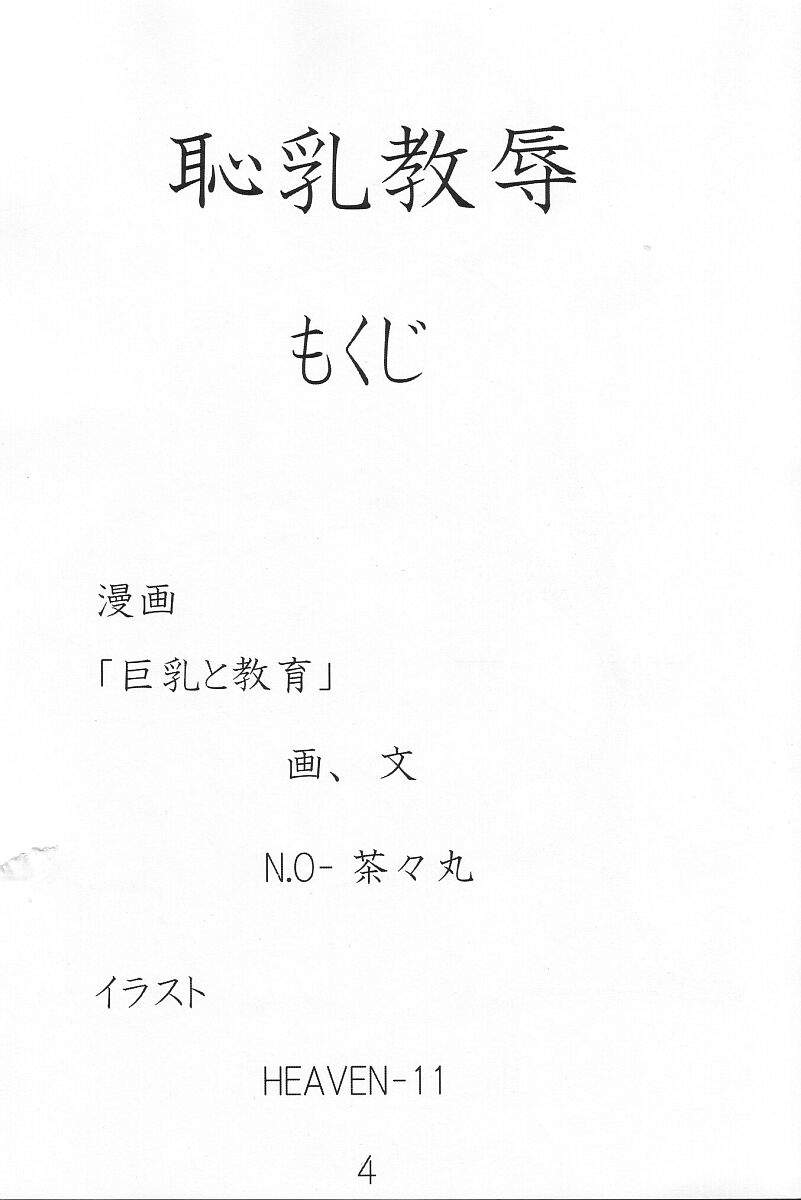 恥乳教辱
もくじ
漫画
「巨乳と教育」
画、文
N.O- 茶々丸
イラスト
HEAVEN-11
4